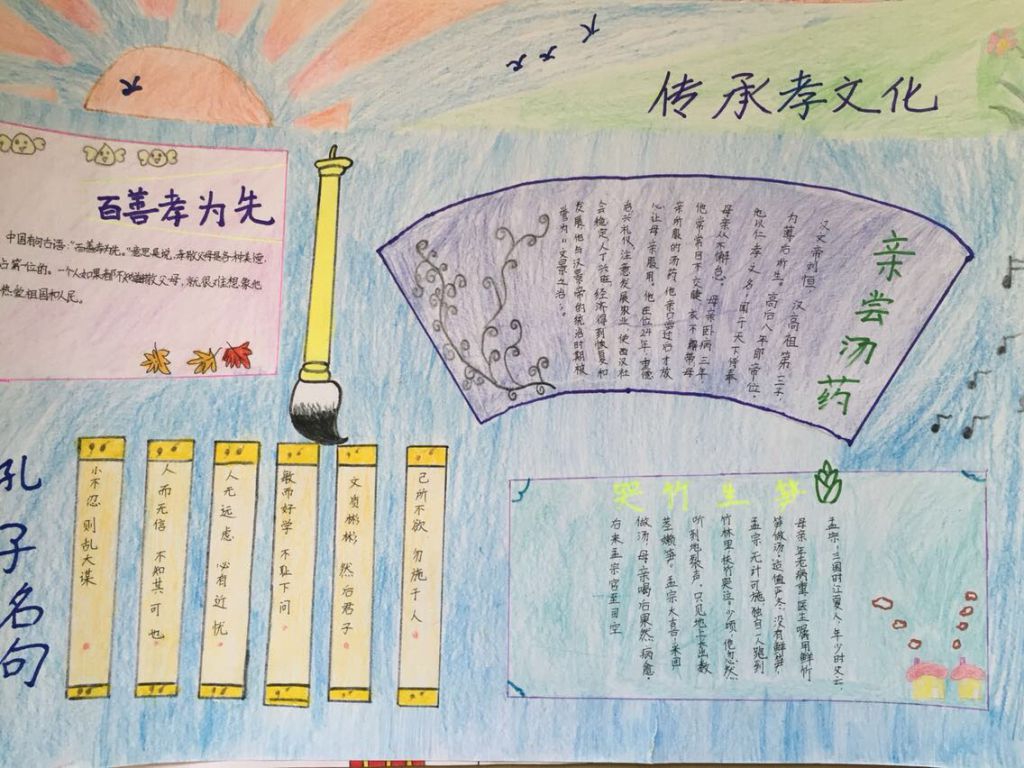 传承孝文化
百善孝为先
中国有句古语:“百善孝为先。”意思是说,孝敬父母是各种美德
占第一位的。一个人如果都不知道孝敬父母,就很难想象他
热爱祖国和人民。
亲尝汤药
汉文帝刘恒,汉高祖第三子,
为薄后所生。高后八年即帝位,
他以仁孝之名,闻于天下,侍奉
母亲从不懈怠。母亲卧病三年,
他常常目不交睫,衣不解带,母
亲所服的汤药,他亲口尝过后才放
心让母亲服用。他在位24年,重德
治,兴礼仪,注意发展农业,使西汉社
会稳定,人丁兴旺,经济得到恢复和
发展,他与汉景帝的统治时期被
誉为“文景之治”。
孔子名句
小不忍 则乱大谋
人而无信 不知其可也
人无远虑 必有近忧
敏而好学 不耻下问
文质彬彬 然后君子
己所不欲 勿施于人
哭竹生笋
孟宗,三国时江夏人,年少时父亡,
母亲年老病重,医生嘱用鲜竹
笋做汤。适值严冬,没有鲜笋,
孟宗无计可施,独自一人跑到
竹林里,扶竹哭泣。少顷,他忽然
听到地裂声,只见地上长出数
茎嫩笋。孟宗大喜,采回
做汤,母亲喝后果然病愈。
后来孟宗官至司空